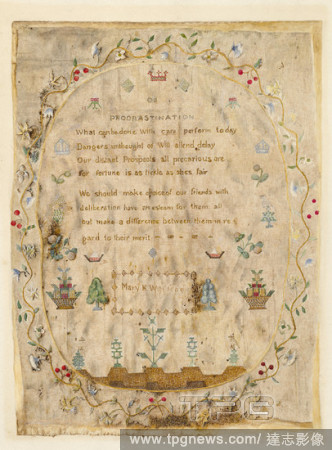 On
PROCRASTINATION
What can be done With care perform to day
Dangers unthought of Will attend delay
Our distant Prospects all precarious are
for fortune is as fickle as shes fair
We should make choice of our friends with
deliberation have an esteem for them all
but make a difference between them in re
gard to their merit
Mary K
TPG
www.tpgnews.com/ 達志影像